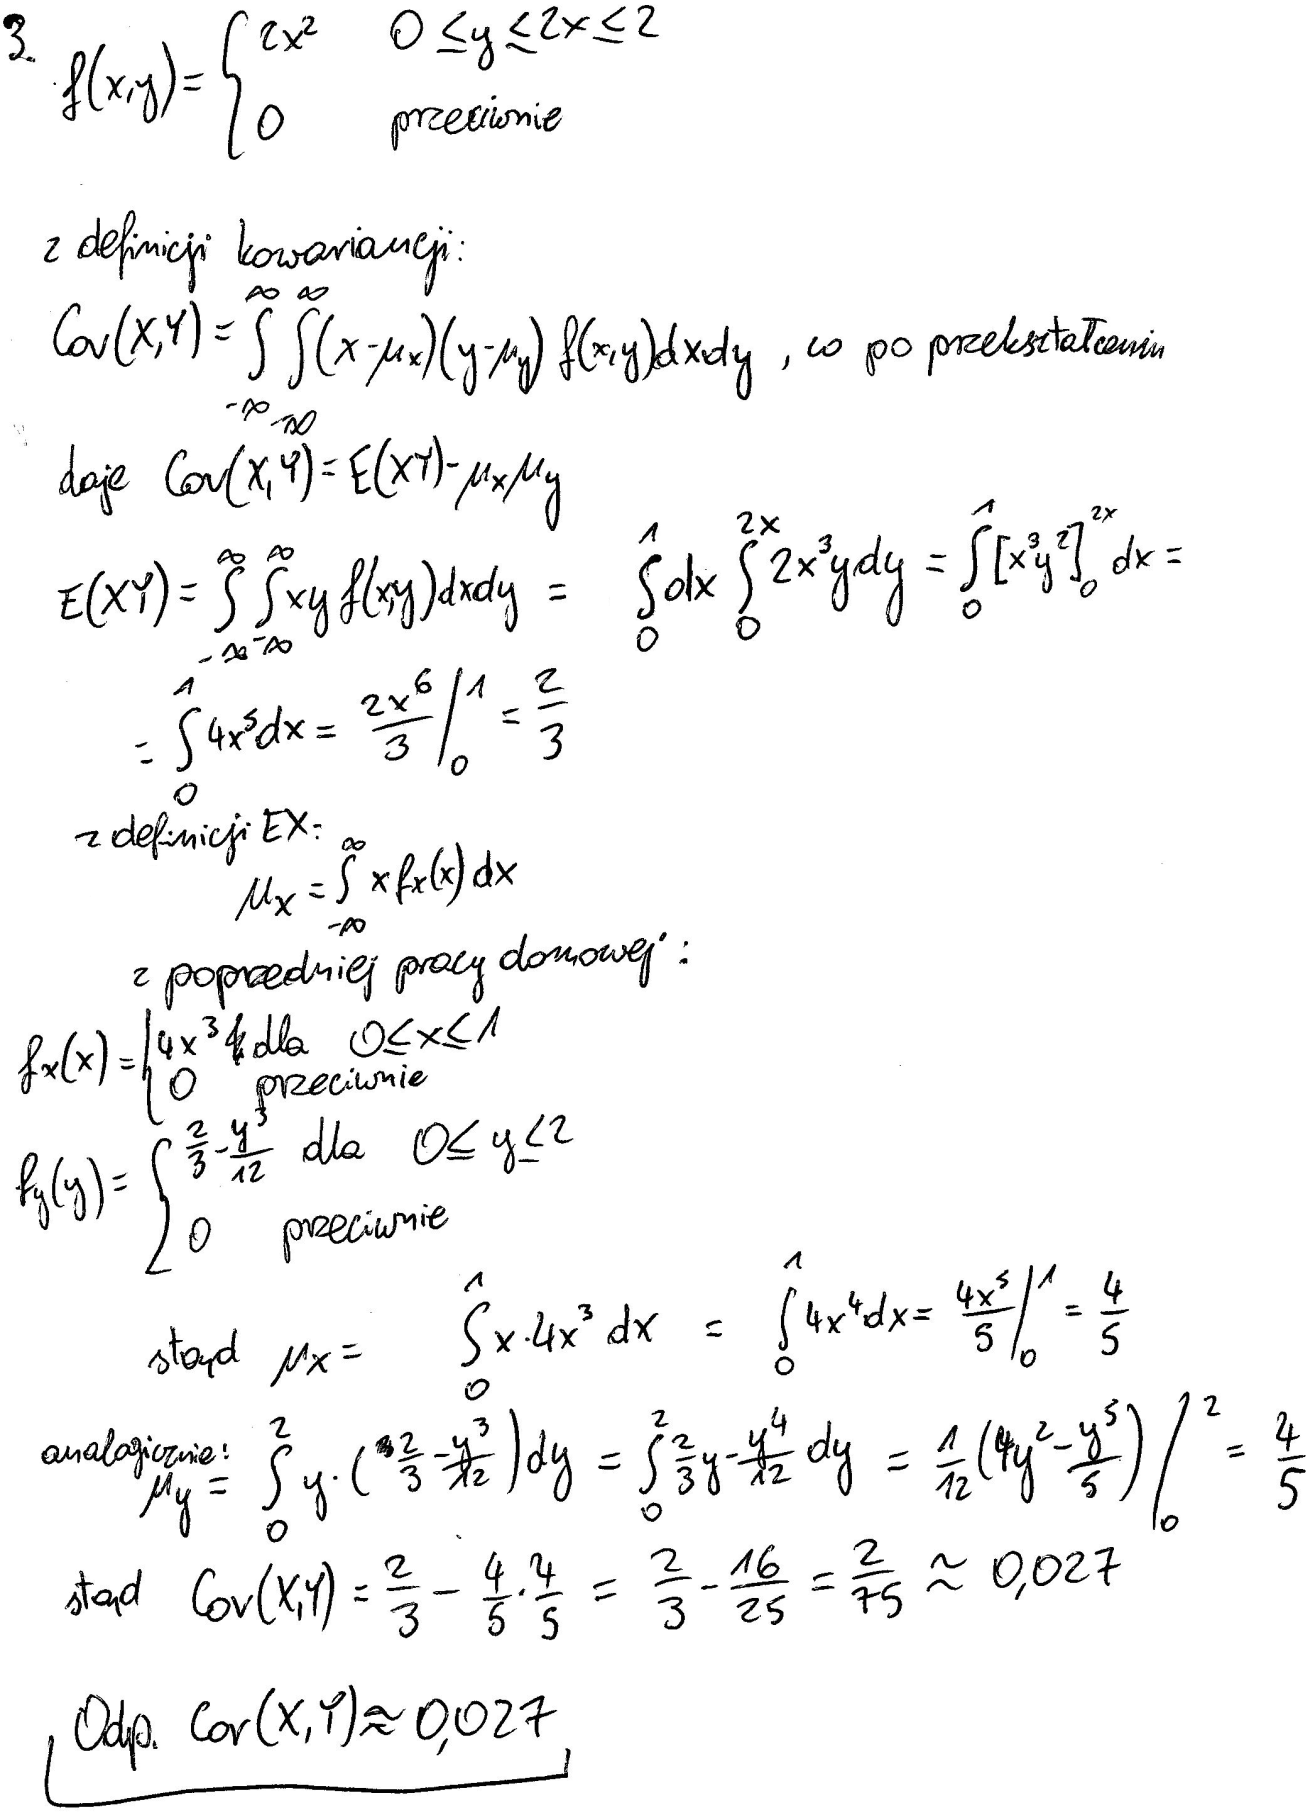 3. f(x,y) = { 2x² 0 ≤ y ≤ 2x ≤ 2
0 przeciwnie
z definicji kowariancji:
Cov(X,Y) = ∫_{-∞}^{∞} ∫_{-∞}^{∞} (x-μx)(y-μy) f(x,y)dxdy , co po przekształceniu
daje Cov(X,Y) = E(XY) - μxμy
E(XY) = ∫_{-∞}^{∞} ∫_{-∞}^{∞} xy f(x,y)dxdy = ∫_0^1 dx ∫_0^{2x} 2x³y dy = ∫_0^1 [x³y²]_0^{2x} dx =
= ∫_0^1 4x⁵dx = 2x⁶/3 |_0^1 = 2/3
z definicji EX:
μx = ∫_{-∞}^{∞} x fx(x) dx
z poprzedniej pracy domowej:
fx(x) = { 4x³ dla 0 ≤ x ≤ 1
0 przeciwnie
fy(y) = { 2/3 - y³/12 dla 0 ≤ y ≤ 2
0 przeciwnie
stąd μx = ∫_0^1 x·4x³ dx = ∫_0^1 4x⁴dx = 4x⁵/5 |_0^1 = 4/5
analogicznie:
μy = ∫_0^2 y·(2/3 - y³/12)dy = ∫_0^2 2/3 y - y⁴/12 dy = 1/12 (4y² - y⁵/5) |_0^2 = 4/5
stąd Cov(X,Y) = 2/3 - 4/5 · 4/5 = 2/3 - 16/25 = 2/75 ≈ 0,027
Odp. Cov(X,Y) ≈ 0,027